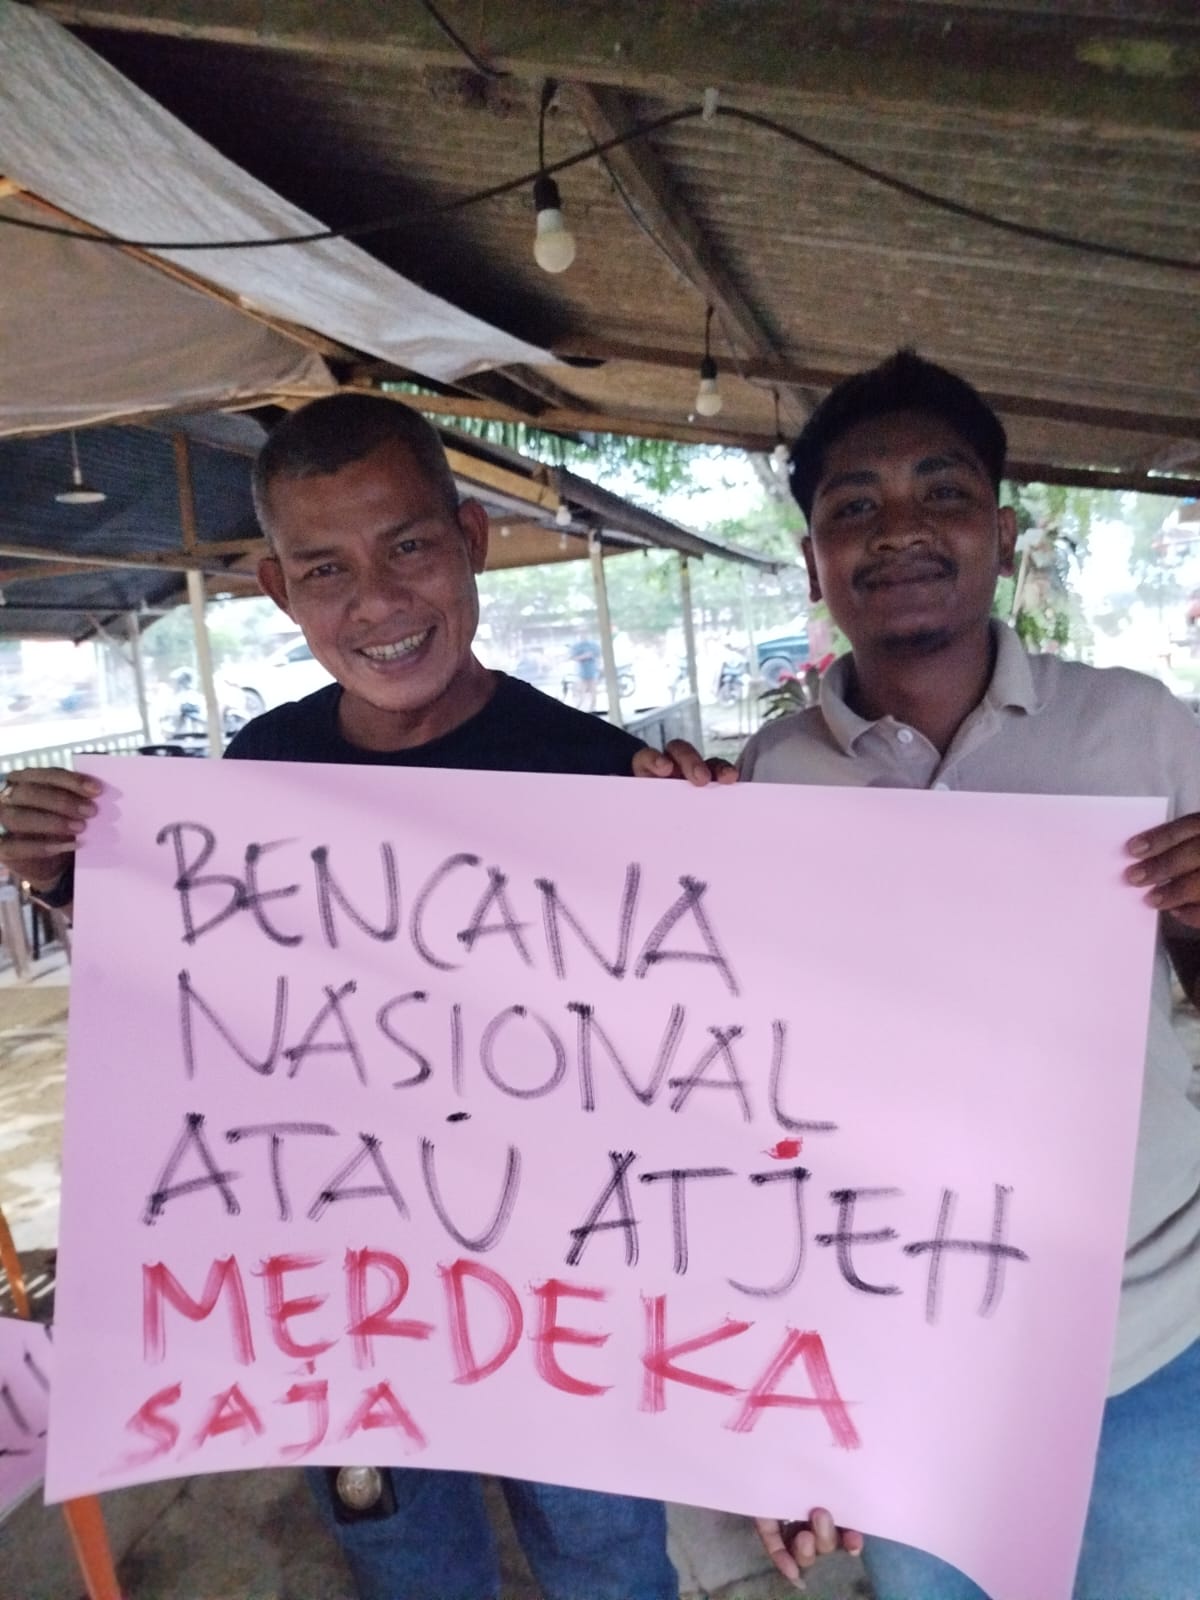 BENCANA
NASIONAL
ATAU ATJEH
MERDEKA
SAJA